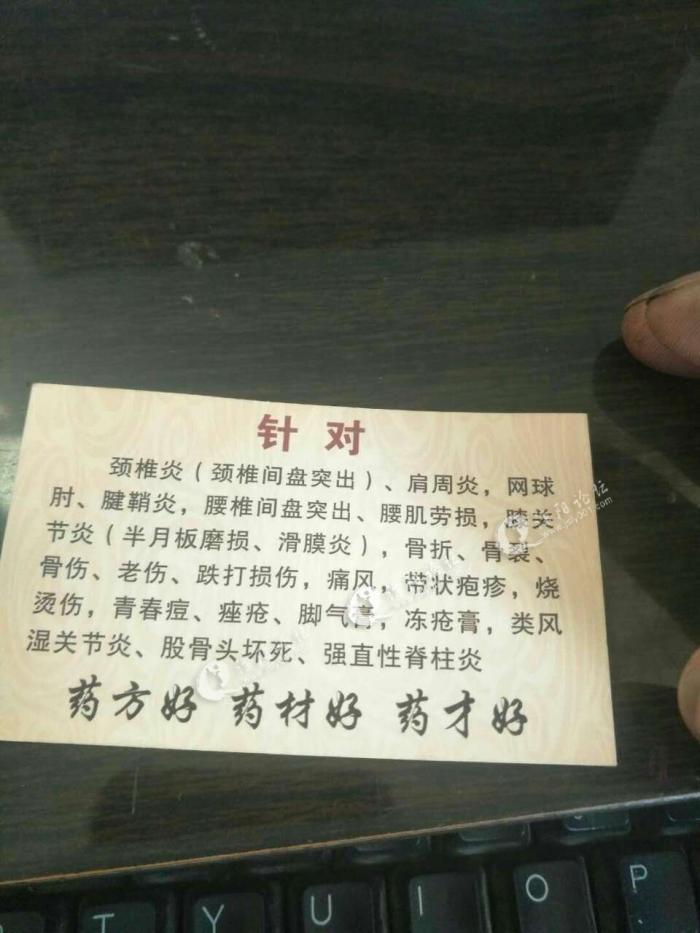 针对
颈椎炎（颈椎间盘突出）、肩周炎，网球
肘、腱鞘炎，腰椎间盘突出、腰肌劳损，膝关
节炎（半月板磨损、滑膜炎），骨折、骨裂、
骨伤、老伤、跌打损伤，痛风，带状疱疹，烧
烫伤，青春痘、痤疮、脚气膏，冻疮膏，类风
湿关节炎、股骨头坏死、强直性脊柱炎
药方好 药材好 药才好
T Y U I O P